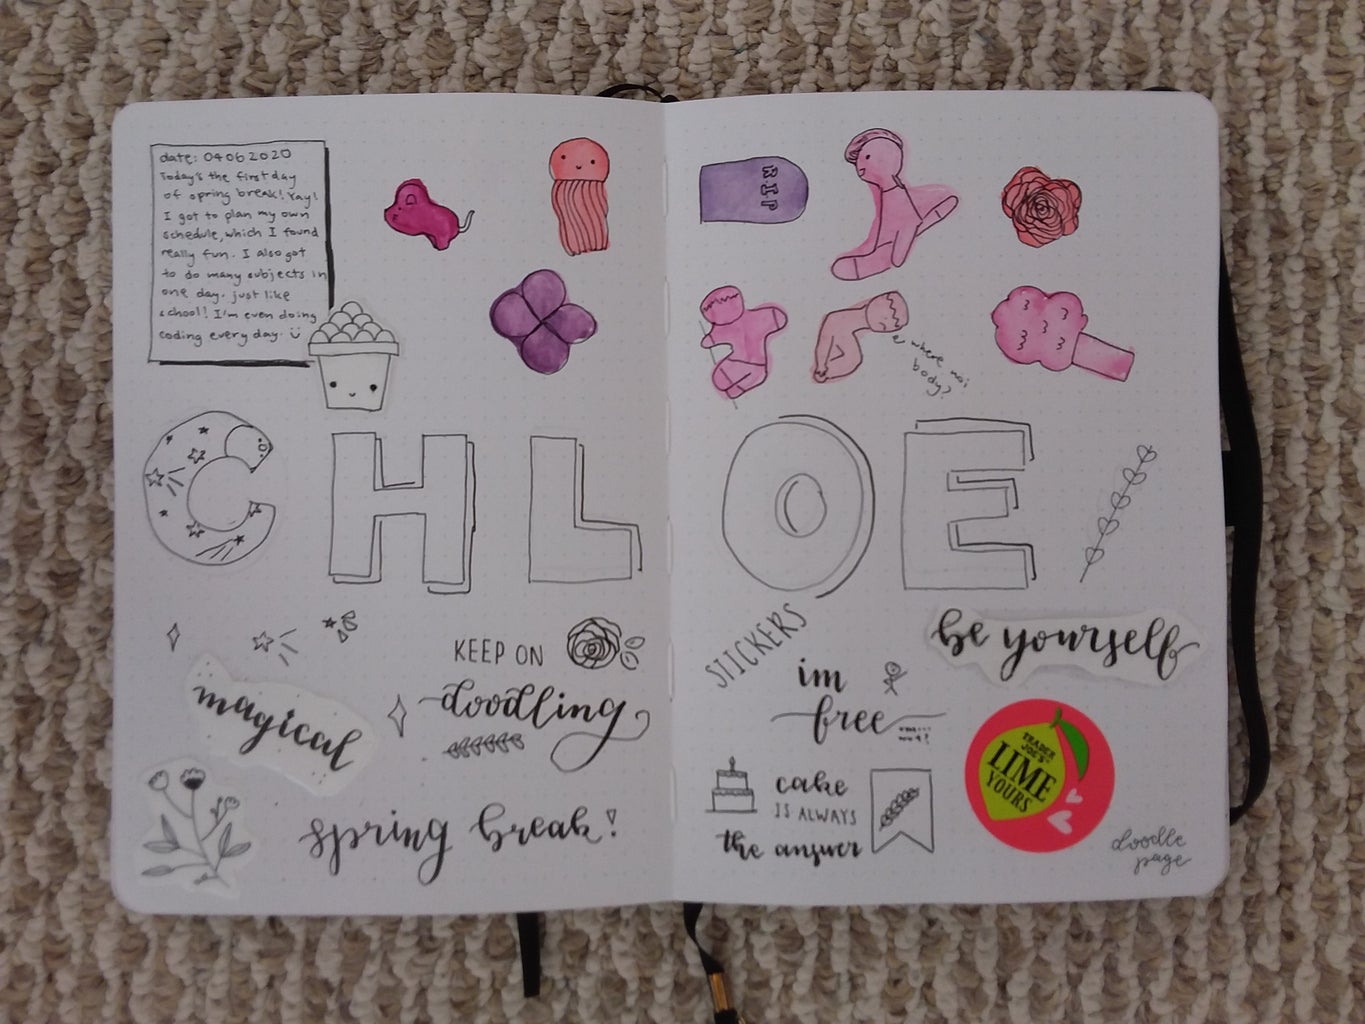 date: 04062020
Today's the first day
of spring break! Yay!
I got to plan my own
schedule, which I found
really fun. I also got
to do many subjects in
one day. just like
school! I'm even doing
coding every day. ü
CHLOE
KEEP ON
doodling
magical
spring break!
RIP
where
body?
STICKERS
im
free
be yourself
cake
IS ALWAYS
the answer
TRADER
JOE'S
LIME
YOURS
doodle
page